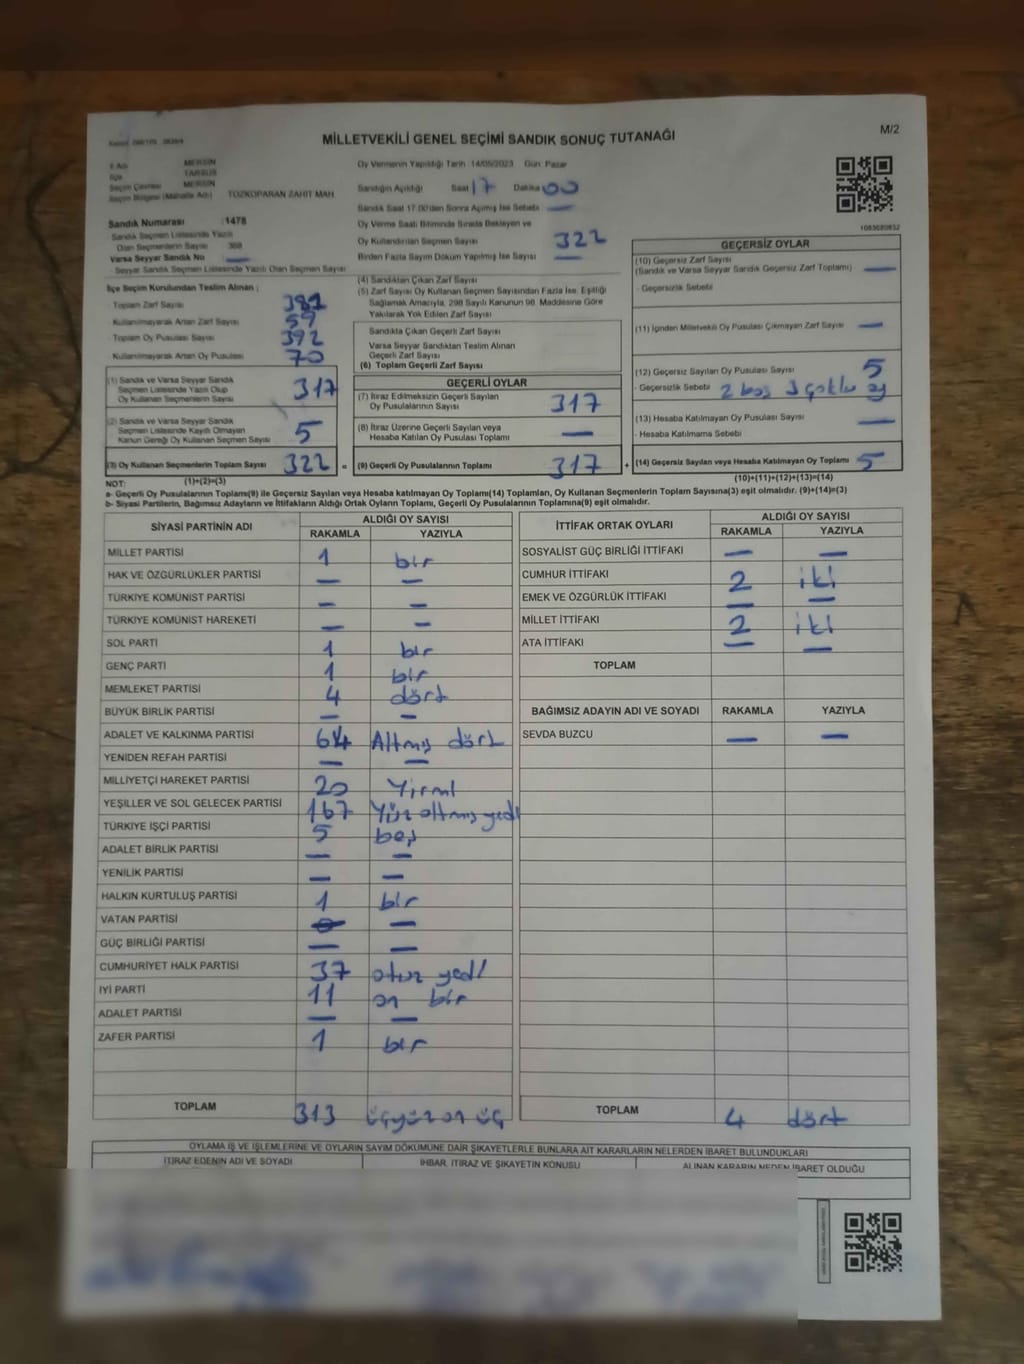 MİLLETVEKİLİ GENEL SEÇİMİ SANDIK SONUÇ TUTANAĞI
M/2
İl Adı MERSİN
İlçe TARSUS
Seçim Çevresi MERSİN
Seçim Bölgesi (Mahalle Adı) TOZKOPARAN ZAHİT MAH
Sandık Numarası :1478
Sandık Seçmen Listesinde Yazılı
Olan Seçmenlerin Sayısı
Varsa Seyyar Sandık No —
Seyyar Sandık Seçmen Listesinde Yazılı Olan Seçmen Sayısı
İlçe Seçim Kurulundan Teslim Alınan ;
Toplam Zarf Sayısı 381
Kullanılmayarak Artan Zarf Sayısı 59
Toplam Oy Pusulası Sayısı 392
Kullanılmayarak Artan Oy Pusulası 70
(1) Sandık ve Varsa Seyyar Sandık
Seçmen Listesinde Yazılı Olup
Oy Kullanan Seçmenlerin Sayısı 317
(2) Sandık ve Varsa Seyyar Sandık
Seçmen Listesinde Kayıtlı Olmayan
Kanun Gereği Oy Kullanan Seçmen Sayısı 5
(3) Oy Kullanan Seçmenlerin Toplam Sayısı 322 =
(1)+(2)=(3)
Oy Vermenin Yapıldığı Tarih 14/05/2023 Gün: Pazar
Sandığın Açıldığı Saat 17 Dakika 00
Sandık Saat 17:00'den Sonra Açılmış İse Sebebi —
Oy Verme Saati Bitiminde Sırada Bekleyen ve
Oy Kullandırılan Seçmen Sayısı 322
Birden Fazla Sayım Döküm Yapılmış İse Sayısı —
(4) Sandıktan Çıkan Zarf Sayısı
(5) Zarf Sayısı Oy Kullanan Seçmen Sayısından Fazla İse, Eşitliği
Sağlamak Amacıyla, 298 Sayılı Kanunun 98. Maddesine Göre
Yakılarak Yok Edilen Zarf Sayısı
Sandıkta Çıkan Geçerli Zarf Sayısı
Varsa Seyyar Sandıktan Teslim Alınan
Geçerli Zarf Sayısı
(6) Toplam Geçerli Zarf Sayısı
GEÇERLİ OYLAR
(7) İtiraz Edilmeksizin Geçerli Sayılan
Oy Pusulalarının Sayısı 317
(8) İtiraz Üzerine Geçerli Sayılan veya
Hesaba Katılan Oy Pusulası Toplamı —
(9) Geçerli Oy Pusulalarının Toplamı 317 +
1083680832
GEÇERSİZ OYLAR
(10) Geçersiz Zarf Sayısı
(Sandık ve Varsa Seyyar Sandık Geçersiz Zarf Toplamı) —
- Geçersizlik Sebebi
(11) İçinden Milletvekili Oy Pusulası Çıkmayan Zarf Sayısı —
(12) Geçersiz Sayılan Oy Pusulası Sayısı 5
- Geçersizlik Sebebi 2 boş 3 çoklu oy
(13) Hesaba Katılmayan Oy Pusulası Sayısı —
- Hesaba Katılmama Sebebi
(14) Geçersiz Sayılan veya Hesaba Katılmayan Oy Toplamı 5
(10)+(11)+(12)+(13)=(14)
NOT:
a- Geçerli Oy Pusulalarının Toplamı(9) ile Geçersiz Sayılan veya Hesaba katılmayan Oy Toplamı(14) Toplamları, Oy Kullanan Seçmenlerin Toplam Sayısına(3) eşit olmalıdır. (9)+(14)=(3)
b- Siyasi Partilerin, Bağımsız Adayların ve İttifakların Aldığı Ortak Oyların Toplamı, Geçerli Oy Pusulalarının Toplamına(9) eşit olmalıdır.
SİYASİ PARTİNİN ADI ALDIĞI OY SAYISI
RAKAMLA YAZIYLA
MİLLET PARTİSİ 1 bir
HAK VE ÖZGÜRLÜKLER PARTİSİ — —
TÜRKİYE KOMÜNİST PARTİSİ — —
TÜRKİYE KOMÜNİST HAREKETİ — —
SOL PARTİ 1 bir
GENÇ PARTİ 1 bir
MEMLEKET PARTİSİ 4 dört
BÜYÜK BİRLİK PARTİSİ — —
ADALET VE KALKINMA PARTİSİ 64 Altmış dört
YENİDEN REFAH PARTİSİ — —
MİLLİYETÇİ HAREKET PARTİSİ 20 Yirmi
YEŞİLLER VE SOL GELECEK PARTİSİ 167 Yüz altmış yedi
TÜRKİYE İŞÇİ PARTİSİ 5 beş
ADALET BİRLİK PARTİSİ — —
YENİLİK PARTİSİ — —
HALKIN KURTULUŞ PARTİSİ 1 bir
VATAN PARTİSİ — —
GÜÇ BİRLİĞİ PARTİSİ — —
CUMHURİYET HALK PARTİSİ 37 otuz yedi
İYİ PARTİ 11 on bir
ADALET PARTİSİ — —
ZAFER PARTİSİ 1 bir
TOPLAM 313 üçyüz on üç
İTTİFAK ORTAK OYLARI ALDIĞI OY SAYISI
RAKAMLA YAZIYLA
SOSYALİST GÜÇ BİRLİĞİ İTTİFAKI — —
CUMHUR İTTİFAKI 2 iki
EMEK VE ÖZGÜRLÜK İTTİFAKI — —
MİLLET İTTİFAKI 2 iki
ATA İTTİFAKI — —
TOPLAM
BAĞIMSIZ ADAYIN ADI VE SOYADI RAKAMLA YAZIYLA
SEVDA BUZCU — —
TOPLAM 4 dört
OYLAMA İŞ VE İŞLEMLERİNE VE OYLARIN SAYIM DÖKÜMÜNE DAİR ŞİKAYETLERLE BUNLARA AİT KARARLARIN NELERDEN İBARET BULUNDUKLARI
İTİRAZ EDENİN ADI VE SOYADI İHBAR, İTİRAZ VE ŞİKAYETİN KONUSU ALINAN KARARIN NEDEN İBARET OLDUĞU